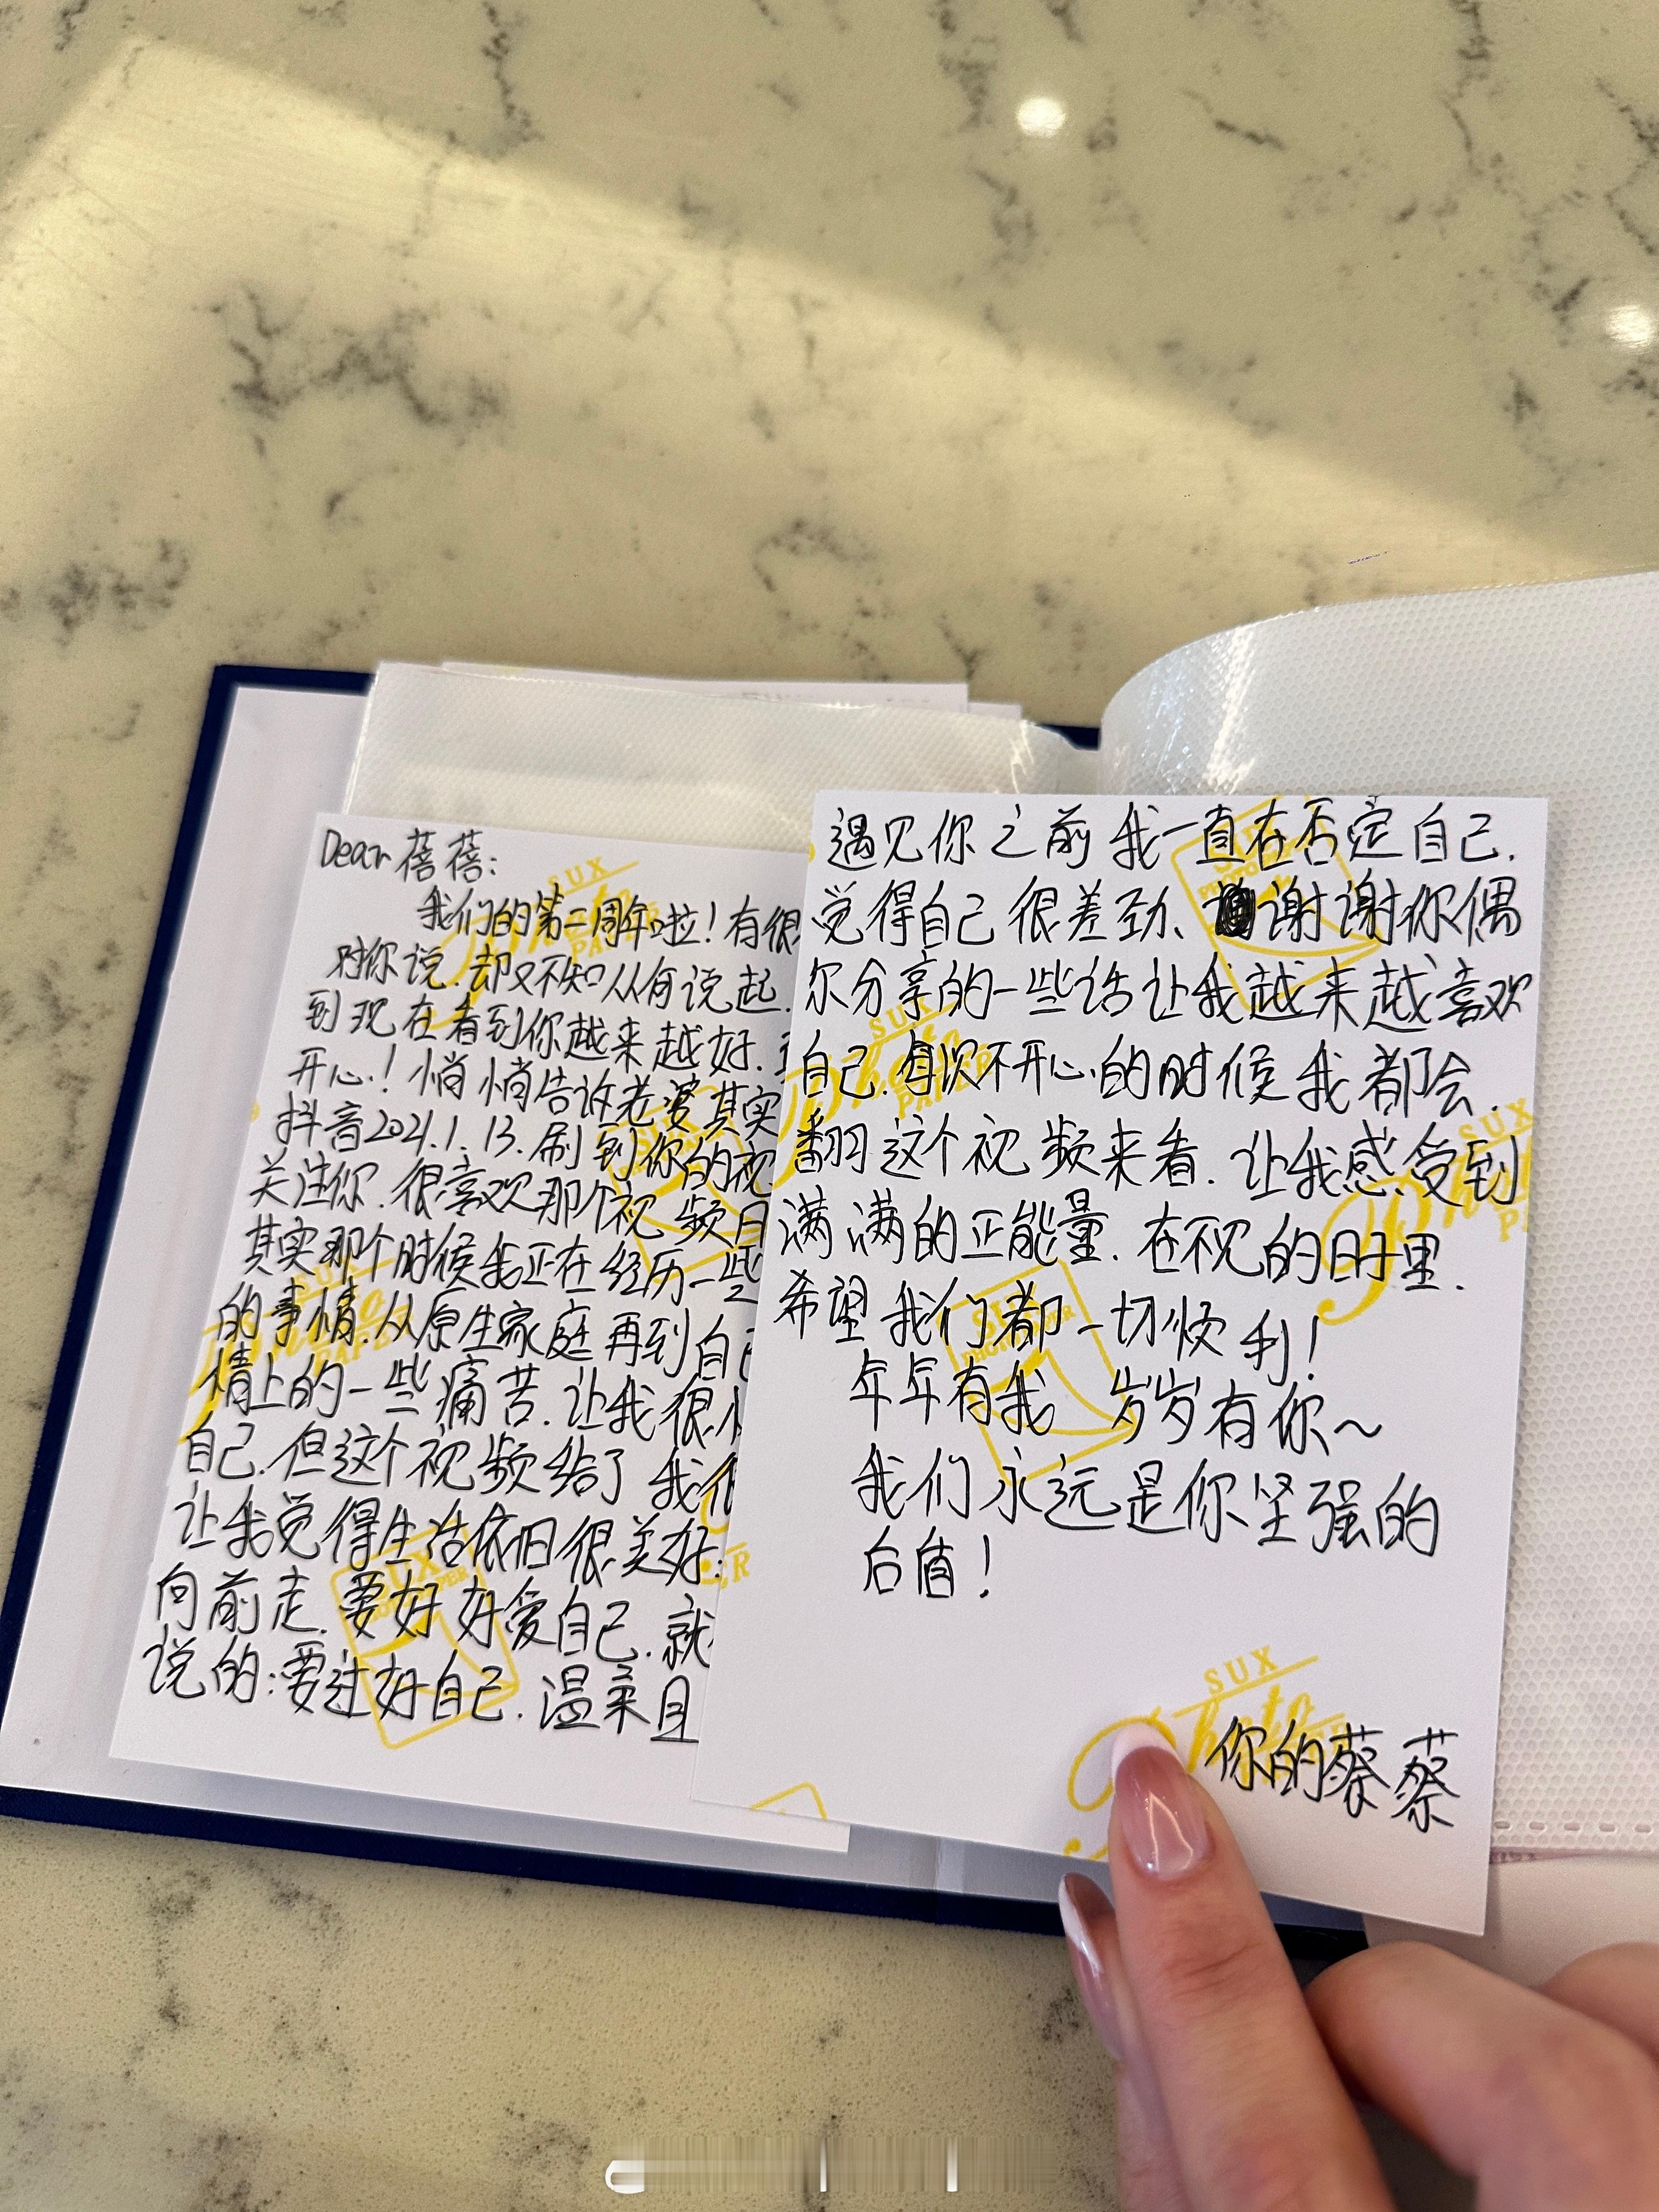 Dear 蓓蓓:
我们的第二周年啦!有很
对你说.却又不知从何说起.
到现在看到你越来越好.
开心!悄悄告诉老婆其实
抖音2021.1.13.刷到你的视
关注你.很喜欢那个视频
其实那个时候我正在经历一些
的事情.从原生家庭再到自己
情上的一些痛苦.让我很
自己.但这个视频给了我
让我觉得生活依旧很美好.
向前走.要好好爱自己.就
说的:要过好自己.温柔且
遇见你之前我一直在否定自己.
觉得自己很差劲、谢谢你偶
尔分享的一些话让我越来越喜欢
自己.每次不开心的时候我都会.
翻这个视频来看.让我感受到
满满的正能量.在的日子里.
希望我们都一切顺利!
年年有我 岁岁有你~
我们永远是你坚强的
后盾!
你的蔡蔡
SUX
Photo
PAPER